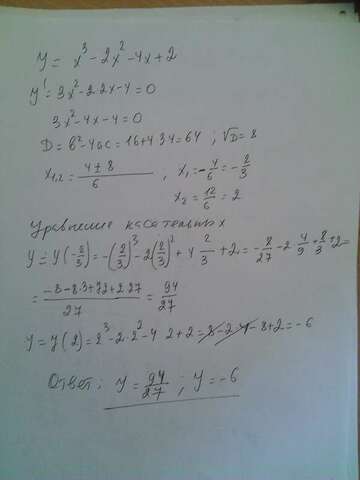 y = x³ - 2x² - 4x + 2
y' = 3x² - 2·2x - 4 = 0
3x² - 4x - 4 = 0
D = b² - 4ac = 16 + 4·3·4 = 64 ; √D = 8
x₁,₂ = (4 ± 8)/6 , x₁ = -4/6 = -2/3
x₂ = 12/6 = 2
Уравнение касательных
y = y(-2/3) = -(2/3)³ - 2(2/3)² + 4·2/3 + 2 = -8/27 - 2·4/9 + 8/3 + 2 =
= (-8 - 8·3 + 72 + 2·27)/27 = 94/27
y = y(2) = 2³ - 2·2² - 4·2 + 2 = 8 - 2·4 - 8 + 2 = -6
Ответ: y = 94/27 ; y = -6